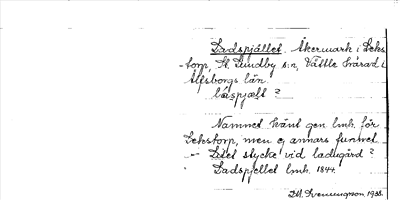 Ladspjället. Åkermark i Leks-
torp, St. Lundby s:n, Vättle härad i
Älfsborgs län.
låspjäll ?
Namnet känt gen. lmh. för
Lekstorp, men ej annars funnet
– Litet stycke vid ladugård ?
Ladspjellet lmh. 1844.
J.M. Svenungson 1938.